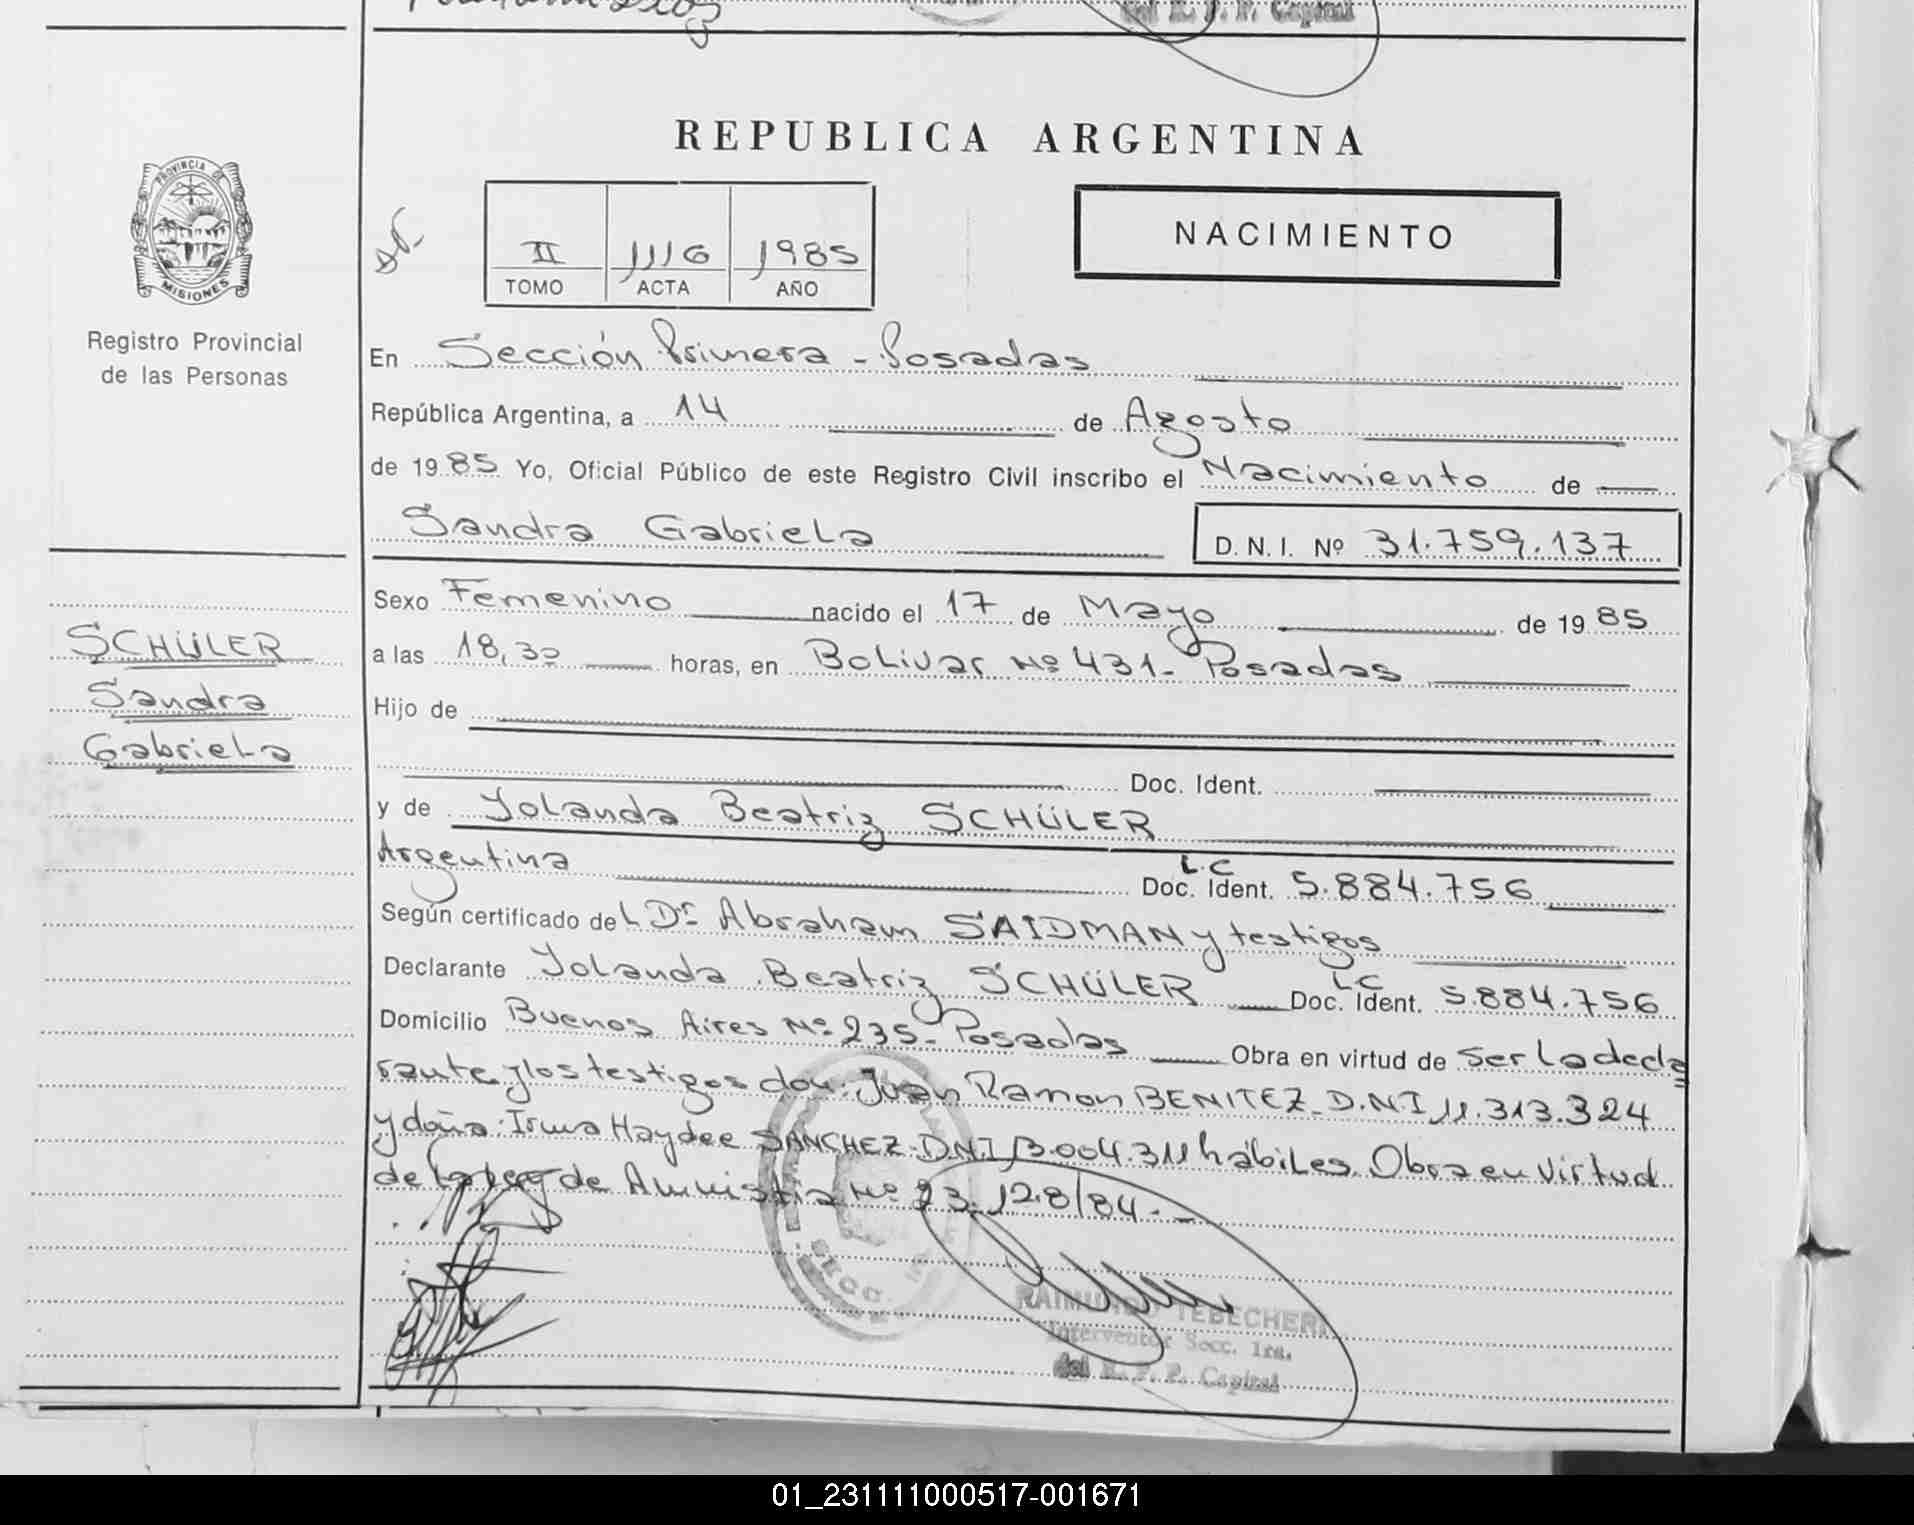 del R. P. P. Capital
REPUBLICA ARGENTINA
PROVINCIA DE
MISIONES
Registro Provincial
de las Personas
II 1116 1985
TOMO ACTA AÑO
NACIMIENTO
En Sección Primera - Posadas
República Argentina, a 14 de Agosto
de 1985 Yo, Oficial Público de este Registro Civil inscribo el Nacimiento de
Sandra Gabriela D. N. I. Nº 31.759.137
Sexo Femenino nacido el 17 de Mayo de 1985
a las 18,30 horas, en Bolivar Nº 431 - Posadas
Hijo de
Doc. Ident.
y de Yolanda Beatriz SCHÜLER
Argentina Doc. Ident. L.C 5.884.756
Según certificado del Dr Abraham SAIDMAN y testigos
Declarante Yolanda Beatriz SCHÜLER Doc. Ident. LC 5.884.756
Domicilio Buenos Aires Nº 235 - Posadas Obra en virtud de Ser la decla
rante y los testigos don: Juan Ramon BENITEZ - D.N.I 11.313.324
y doña: Irma Haydee SANCHEZ - D.N.I 13.004.311 hábiles. Obra en virtud
de la Ley de Amnistia Nº 23.128/84.-
SCHÜLER
Sandra
Gabriela
SECC.
RAIMUNDO TEBECHERI
Interventor Secc. 1ra.
del R. P. P. Capital
01_231111000517-001671